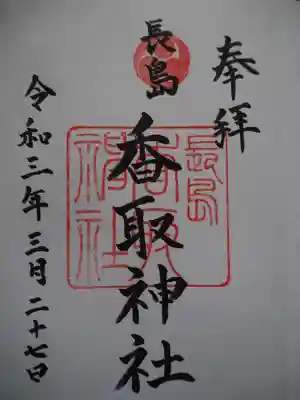 奉拝
長島
香取神社
令和三年三月二十七日
長島
香取
神社